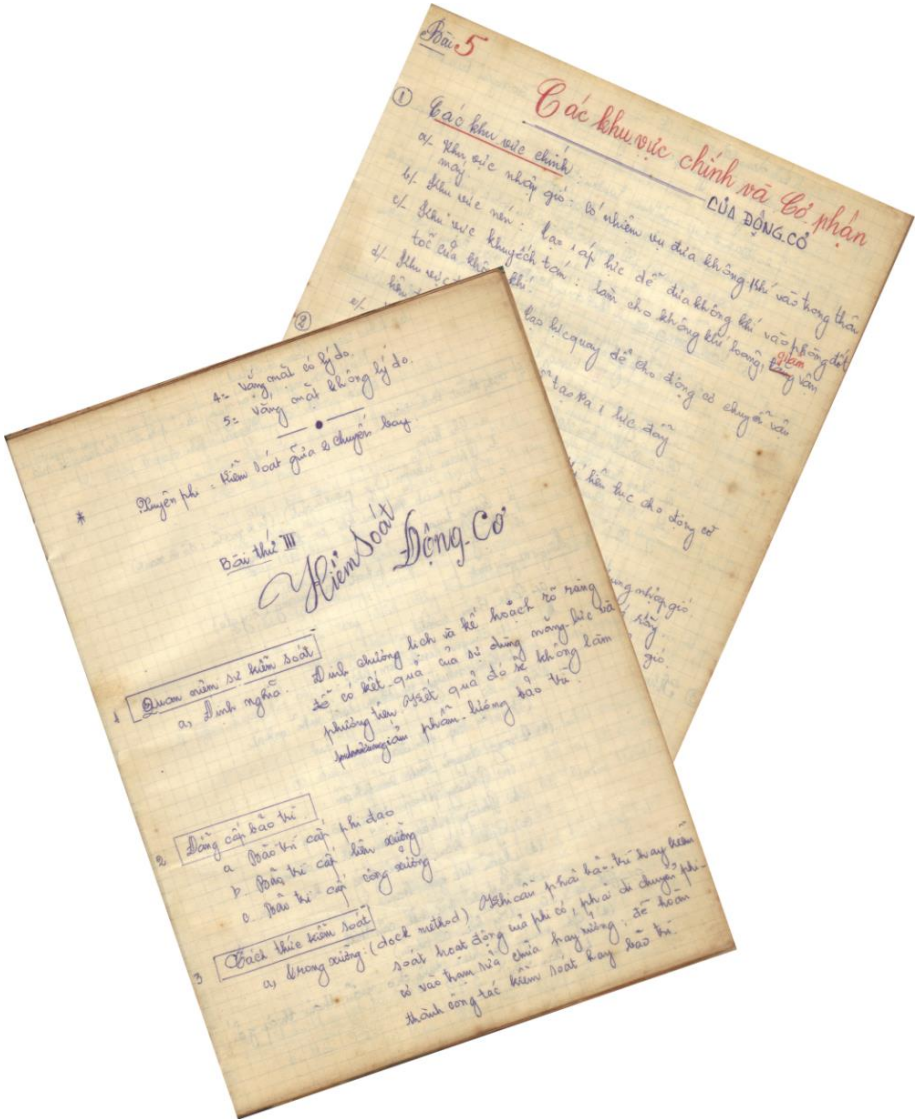 Bài 5
Các khu vực chính và Cơ phận
CỦA ĐỘNG CƠ
① Các khu vực chính
a/- Khu vực nhập gió - có nhiệm vụ đưa không khí vào trong thân
máy
b/- Khu vực nén : tạo 1 áp lực để đưa không khí vào phòng đốt
c/- Khu vực khuyếch tán : làm cho không khí loãng, giảm vận
tốc của không khí.
d/- Khu vực tạo lực quay để cho động cơ chuyển vận
liên
e/-
②
tạo ra 1 lực đẩy
liên tục cho động cơ
nhập gió
gió
4= Vắng mặt có lý do.
5= Vắng mặt không lý do.
* Xuyên phi = Kiểm soát giữa 2 chuyến bay
Bài thứ III
Kiểm Soát
Động Cơ
1 Quan niệm sự kiểm soát
a, Định nghĩa. Định chương lịch và kế hoạch rõ ràng
để có kết quả của sử dụng năng lực và
phương tiện. Kết quả đó sẽ không làm
giảm phẩm lượng bảo trì.
2 Đẳng cấp bảo trì
a Bảo trì cấp phi đạo
b. Bảo trì cấp liên xưởng
c. Bảo trì cấp công xưởng
3 Cách thức kiểm soát
a, trong xưởng. (dock method) Khi cần phải bảo trì hay kiểm
soát hoạt động của phi cơ, phải di chuyển phi
cơ vào trạm sửa chữa hay xưởng để hoàn
thành công tác kiểm soát hay bảo trì